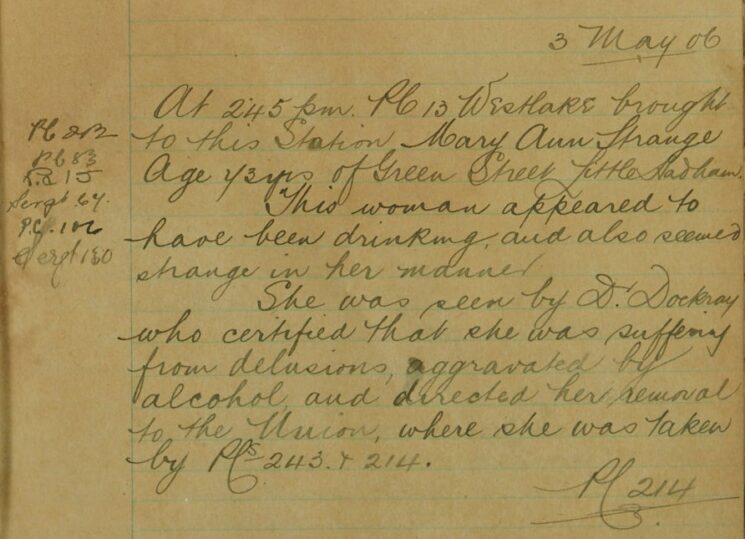 3 May 06
At 2.45 pm. PC 13 Westlake brought
to this Station Mary Ann Strange
Age 43 yrs of Green Street Little Hadham.
This woman appeared to
have been drinking, and also seemed
strange in her manner
She was seen by Dr Dockray
who certified that she was suffering
from delusions, aggravated by
alcohol, and directed her removal
to the Union, where she was taken
by PCs 243. & 214.
PC 214
PC 83
Sergt 64.
P.C. 102
Sergt 130